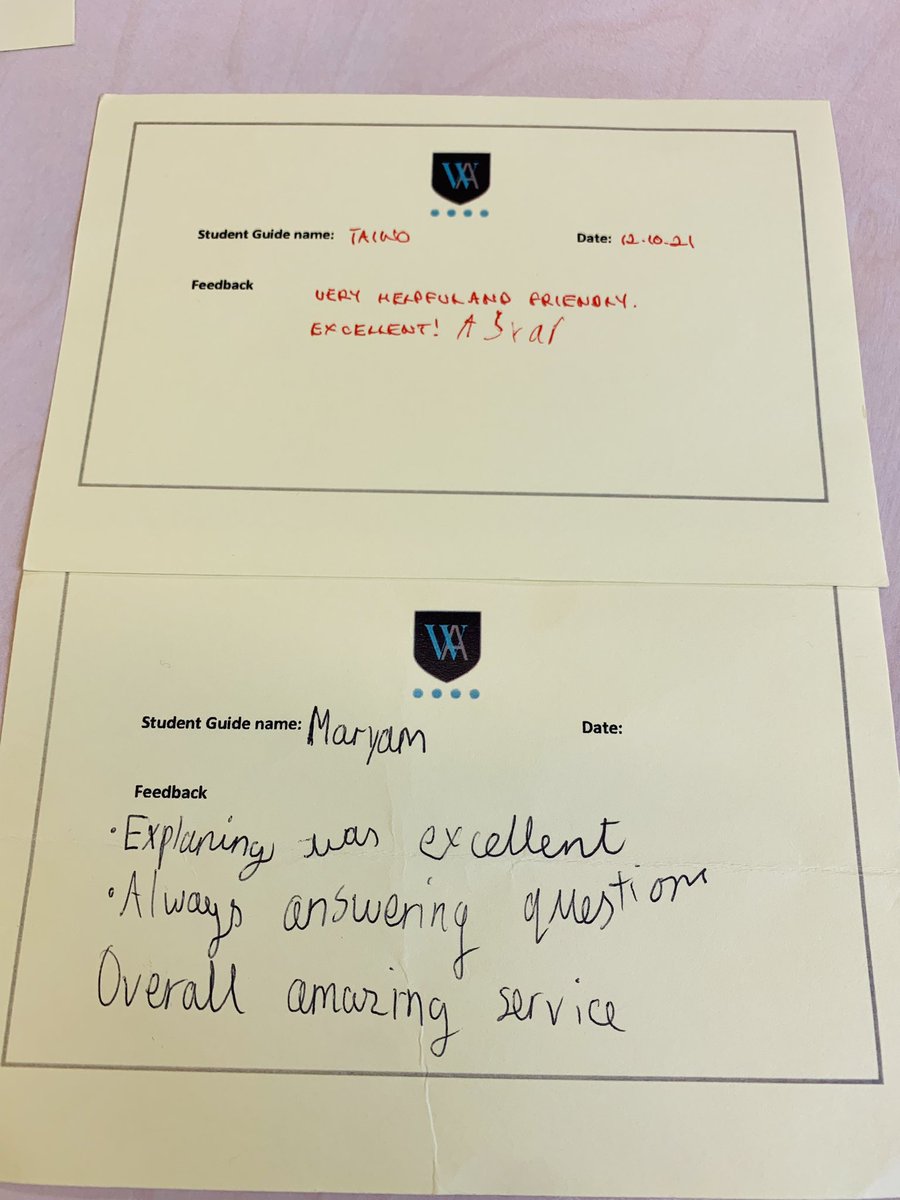 WA
Student Guide name: TAIWO Date: 12.10.21
Feedback VERY HELPFUL AND FRIENDLY.
EXCELLENT!
WA
Student Guide name: Maryam Date:
Feedback
• Explaning was excellent
• Always answering questions
Overall amazing service